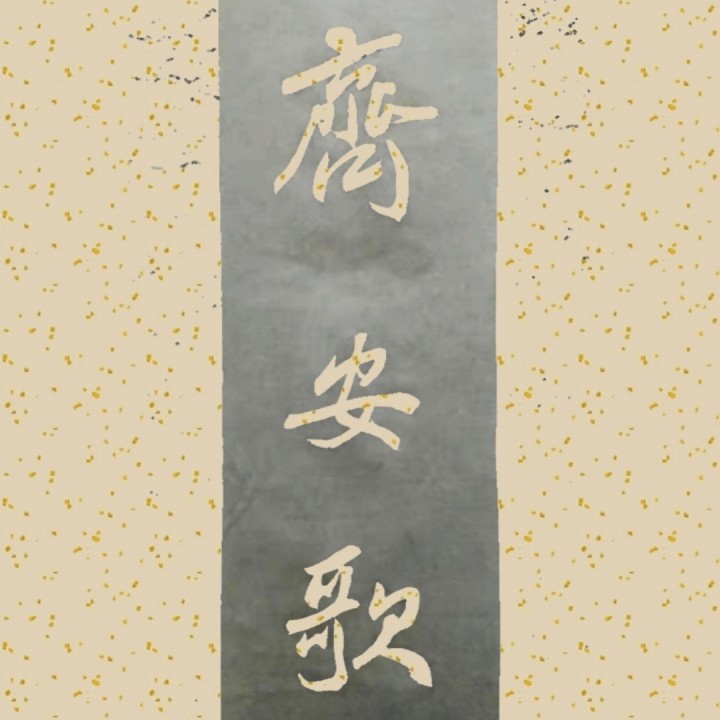 齊安歌